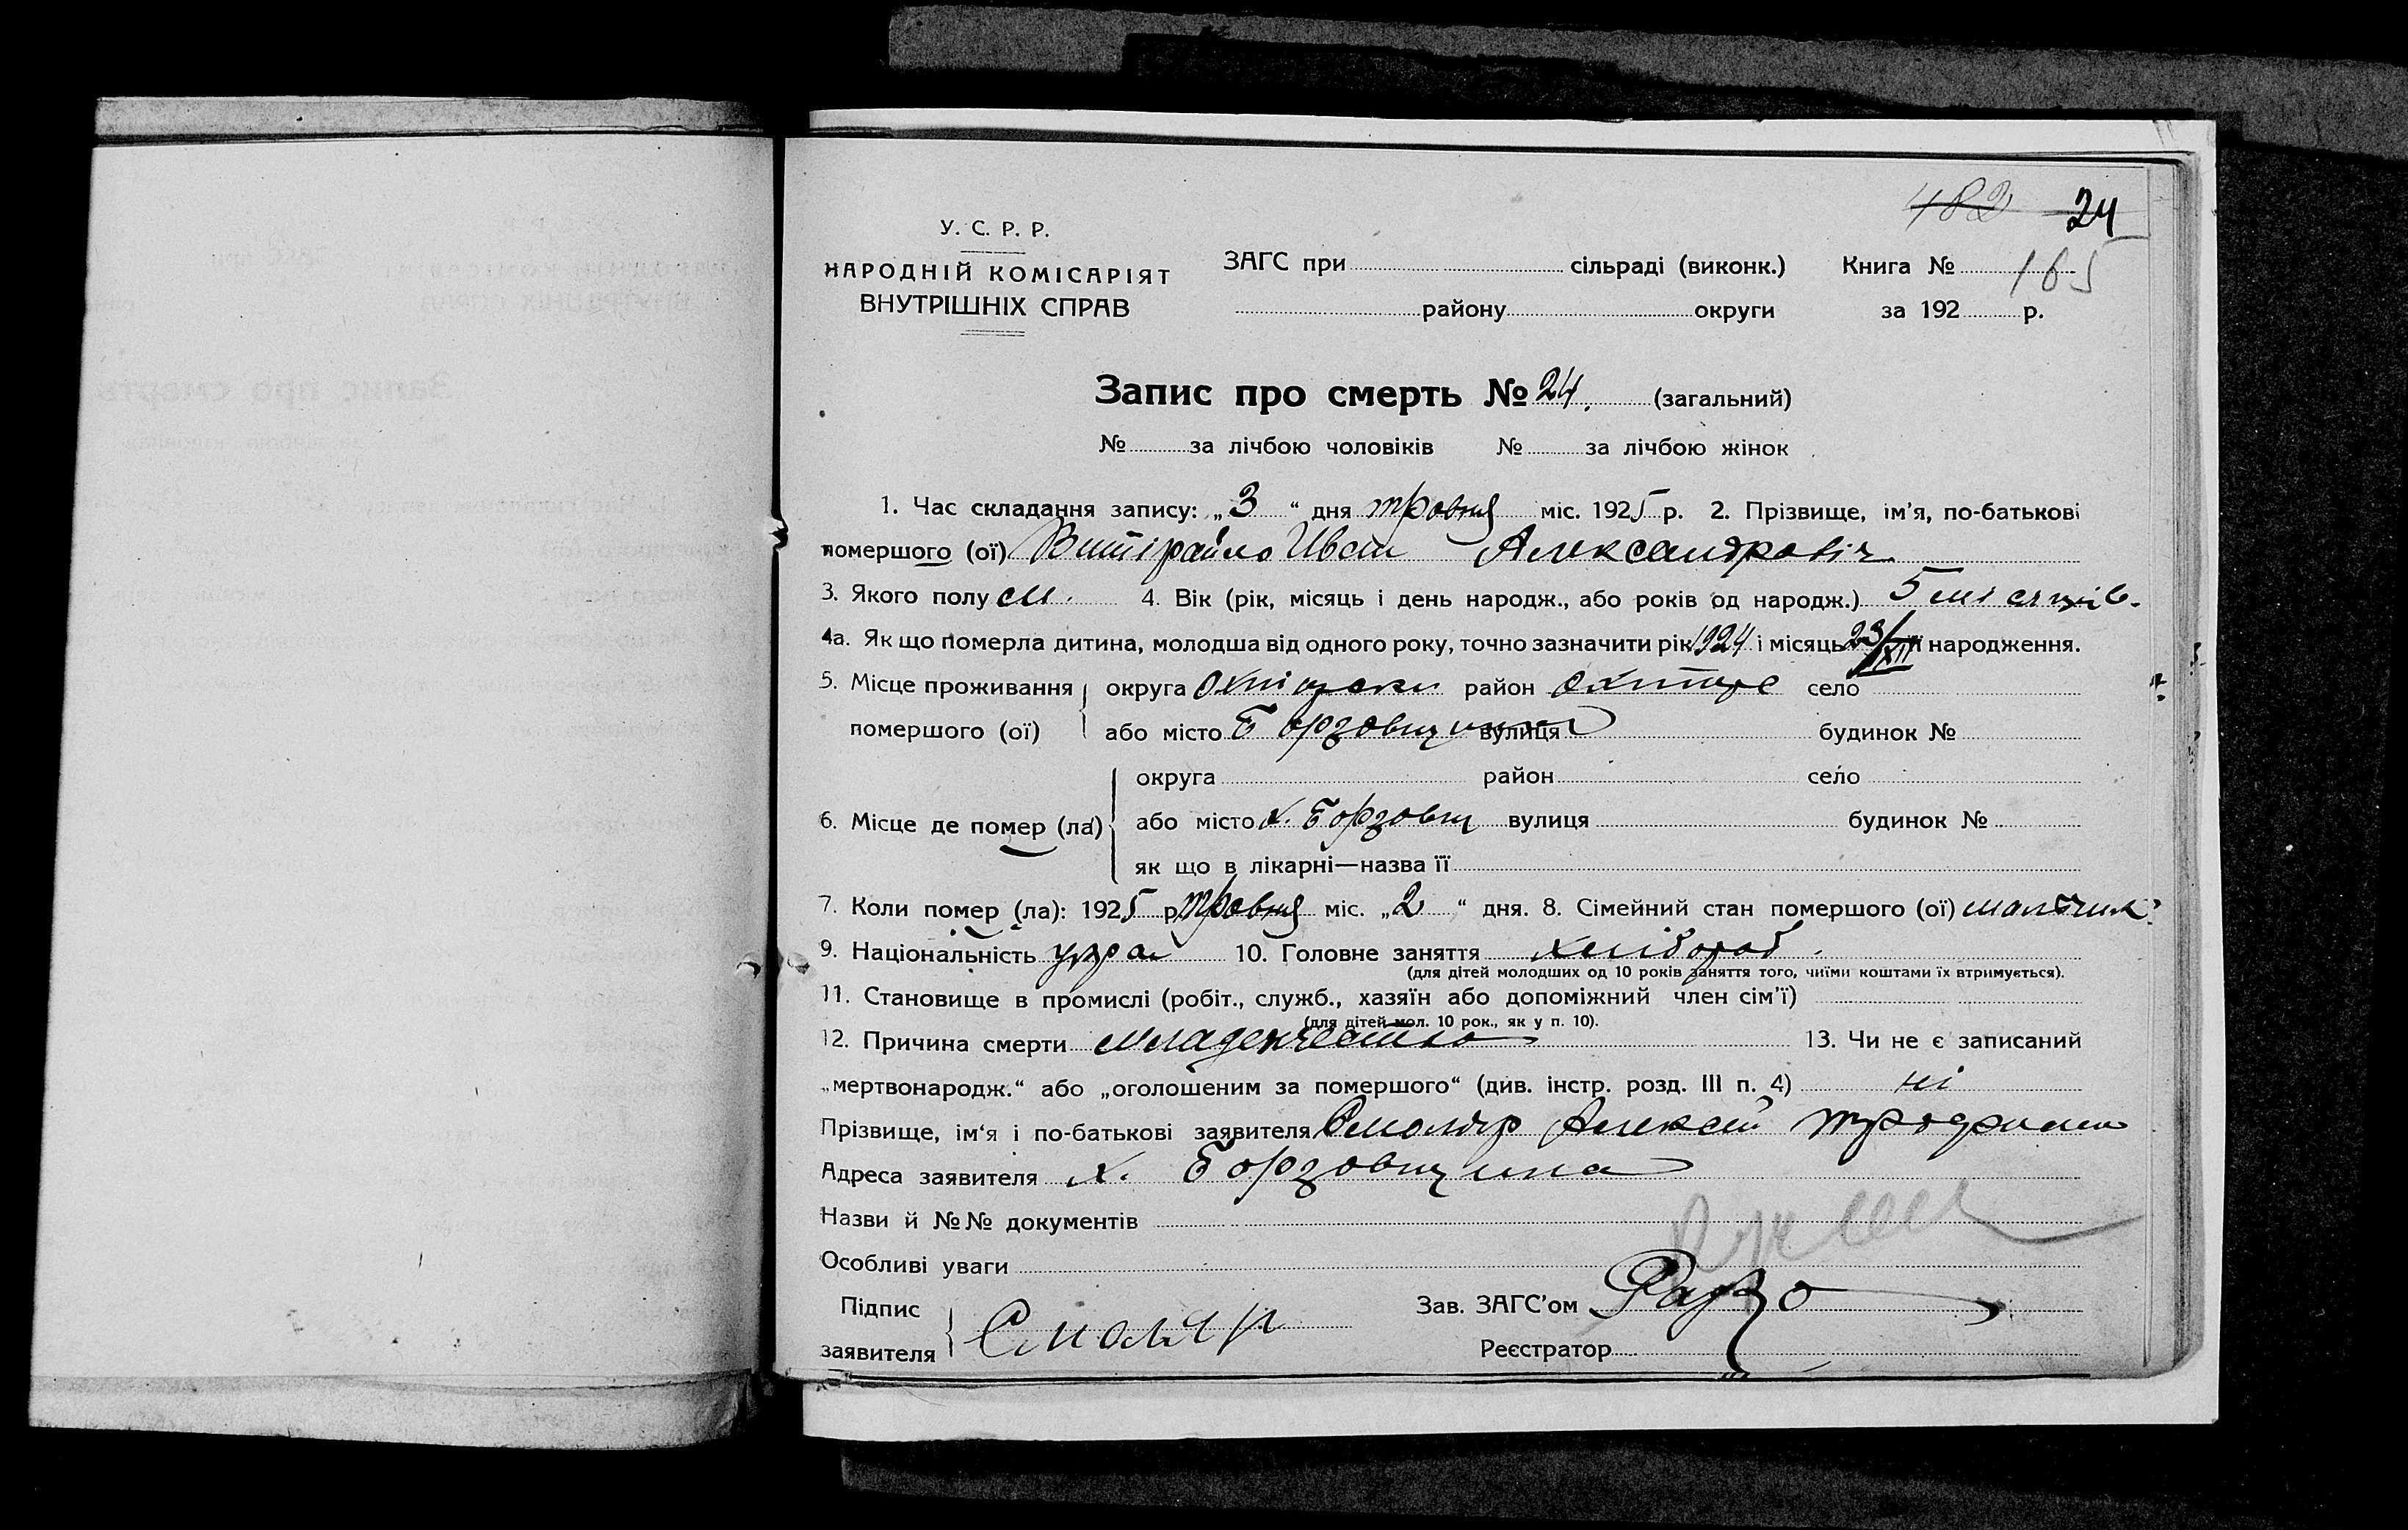 482 24
У. С. Р. Р.
НАРОДНІЙ КОМІСАРІЯТ
ВНУТРІШНІХ СПРАВ
ЗАГС при сільраді (виконк.) Книга № 165
району округи за 192 р.
Запис про смерть № 24. (загальний)
№ за лічбою чоловіків № за лічбою жінок
1. Час складання запису: „3“ дня травня міс. 1925 р. 2. Прізвище, ім'я, по-батькові
помершого (ої) Иван Александровіч
3. Якого полу м. 4. Вік (рік, місяць і день народж., або років од народж.) 5 місяців.
4а. Як що померла дитина, молодша від одного року, точно зазначити рік 1924 і місяць 23/XII її народження.
5. Місце проживання округа район село
помершого (ої) або місто Борзовщина вулиця будинок №
округа район село
6. Місце де помер (ла) або місто х. Борзовщ вулиця будинок №
як що в лікарні—назва її
7. Коли помер (ла): 1925 р. травня міс. „2“ дня. 8. Сімейний стан помершого (ої) мальчик
9. Національність украй 10. Головне заняття хлібороб.
(для дітей молодших од 10 років заняття того, чиїми коштами їх втримується).
11. Становище в промислі (робіт., служб., хазяїн або допоміжний член сім'ї)
(для дітей мол. 10 рок., як у п. 10).
12. Причина смерти младенчество 13. Чи не є записаний
„мертвонародж.“ або „оголошеним за помершого“ (див. інстр. розд. III п. 4) ні
Прізвище, ім'я і по-батькові заявителя Смоляр Алексей
Адреса заявителя х. Борзовщина
Назви й №№ документів
Особливі уваги
Підпис
заявителя Смоляр
Зав. ЗАГС'ом
Реєстратор